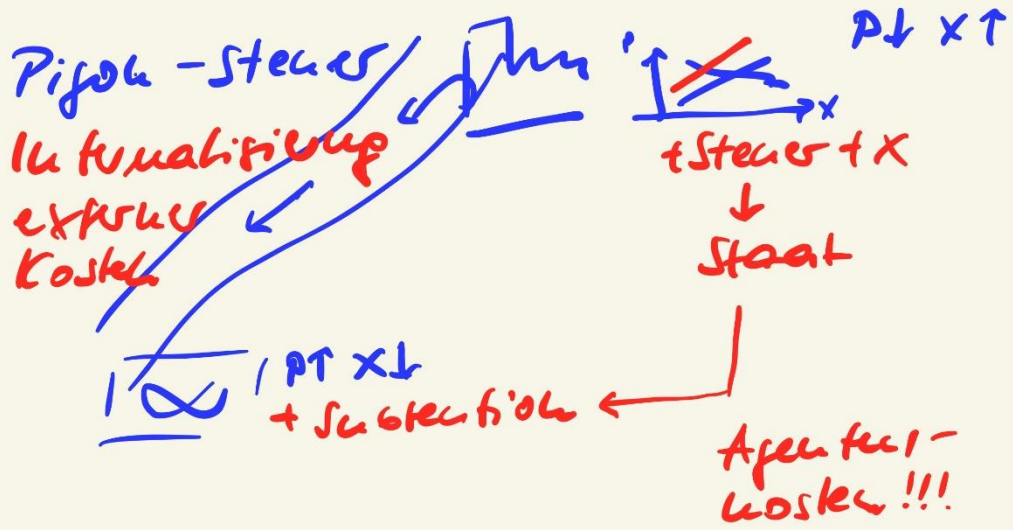 Pigou-Steuer
Internalisierung
externer
Kosten
P
x
P↓ X↑
+ Steuer + X
↓
Staat
P↑ X↓
+ Subvention
Agentur-
kosten!!!